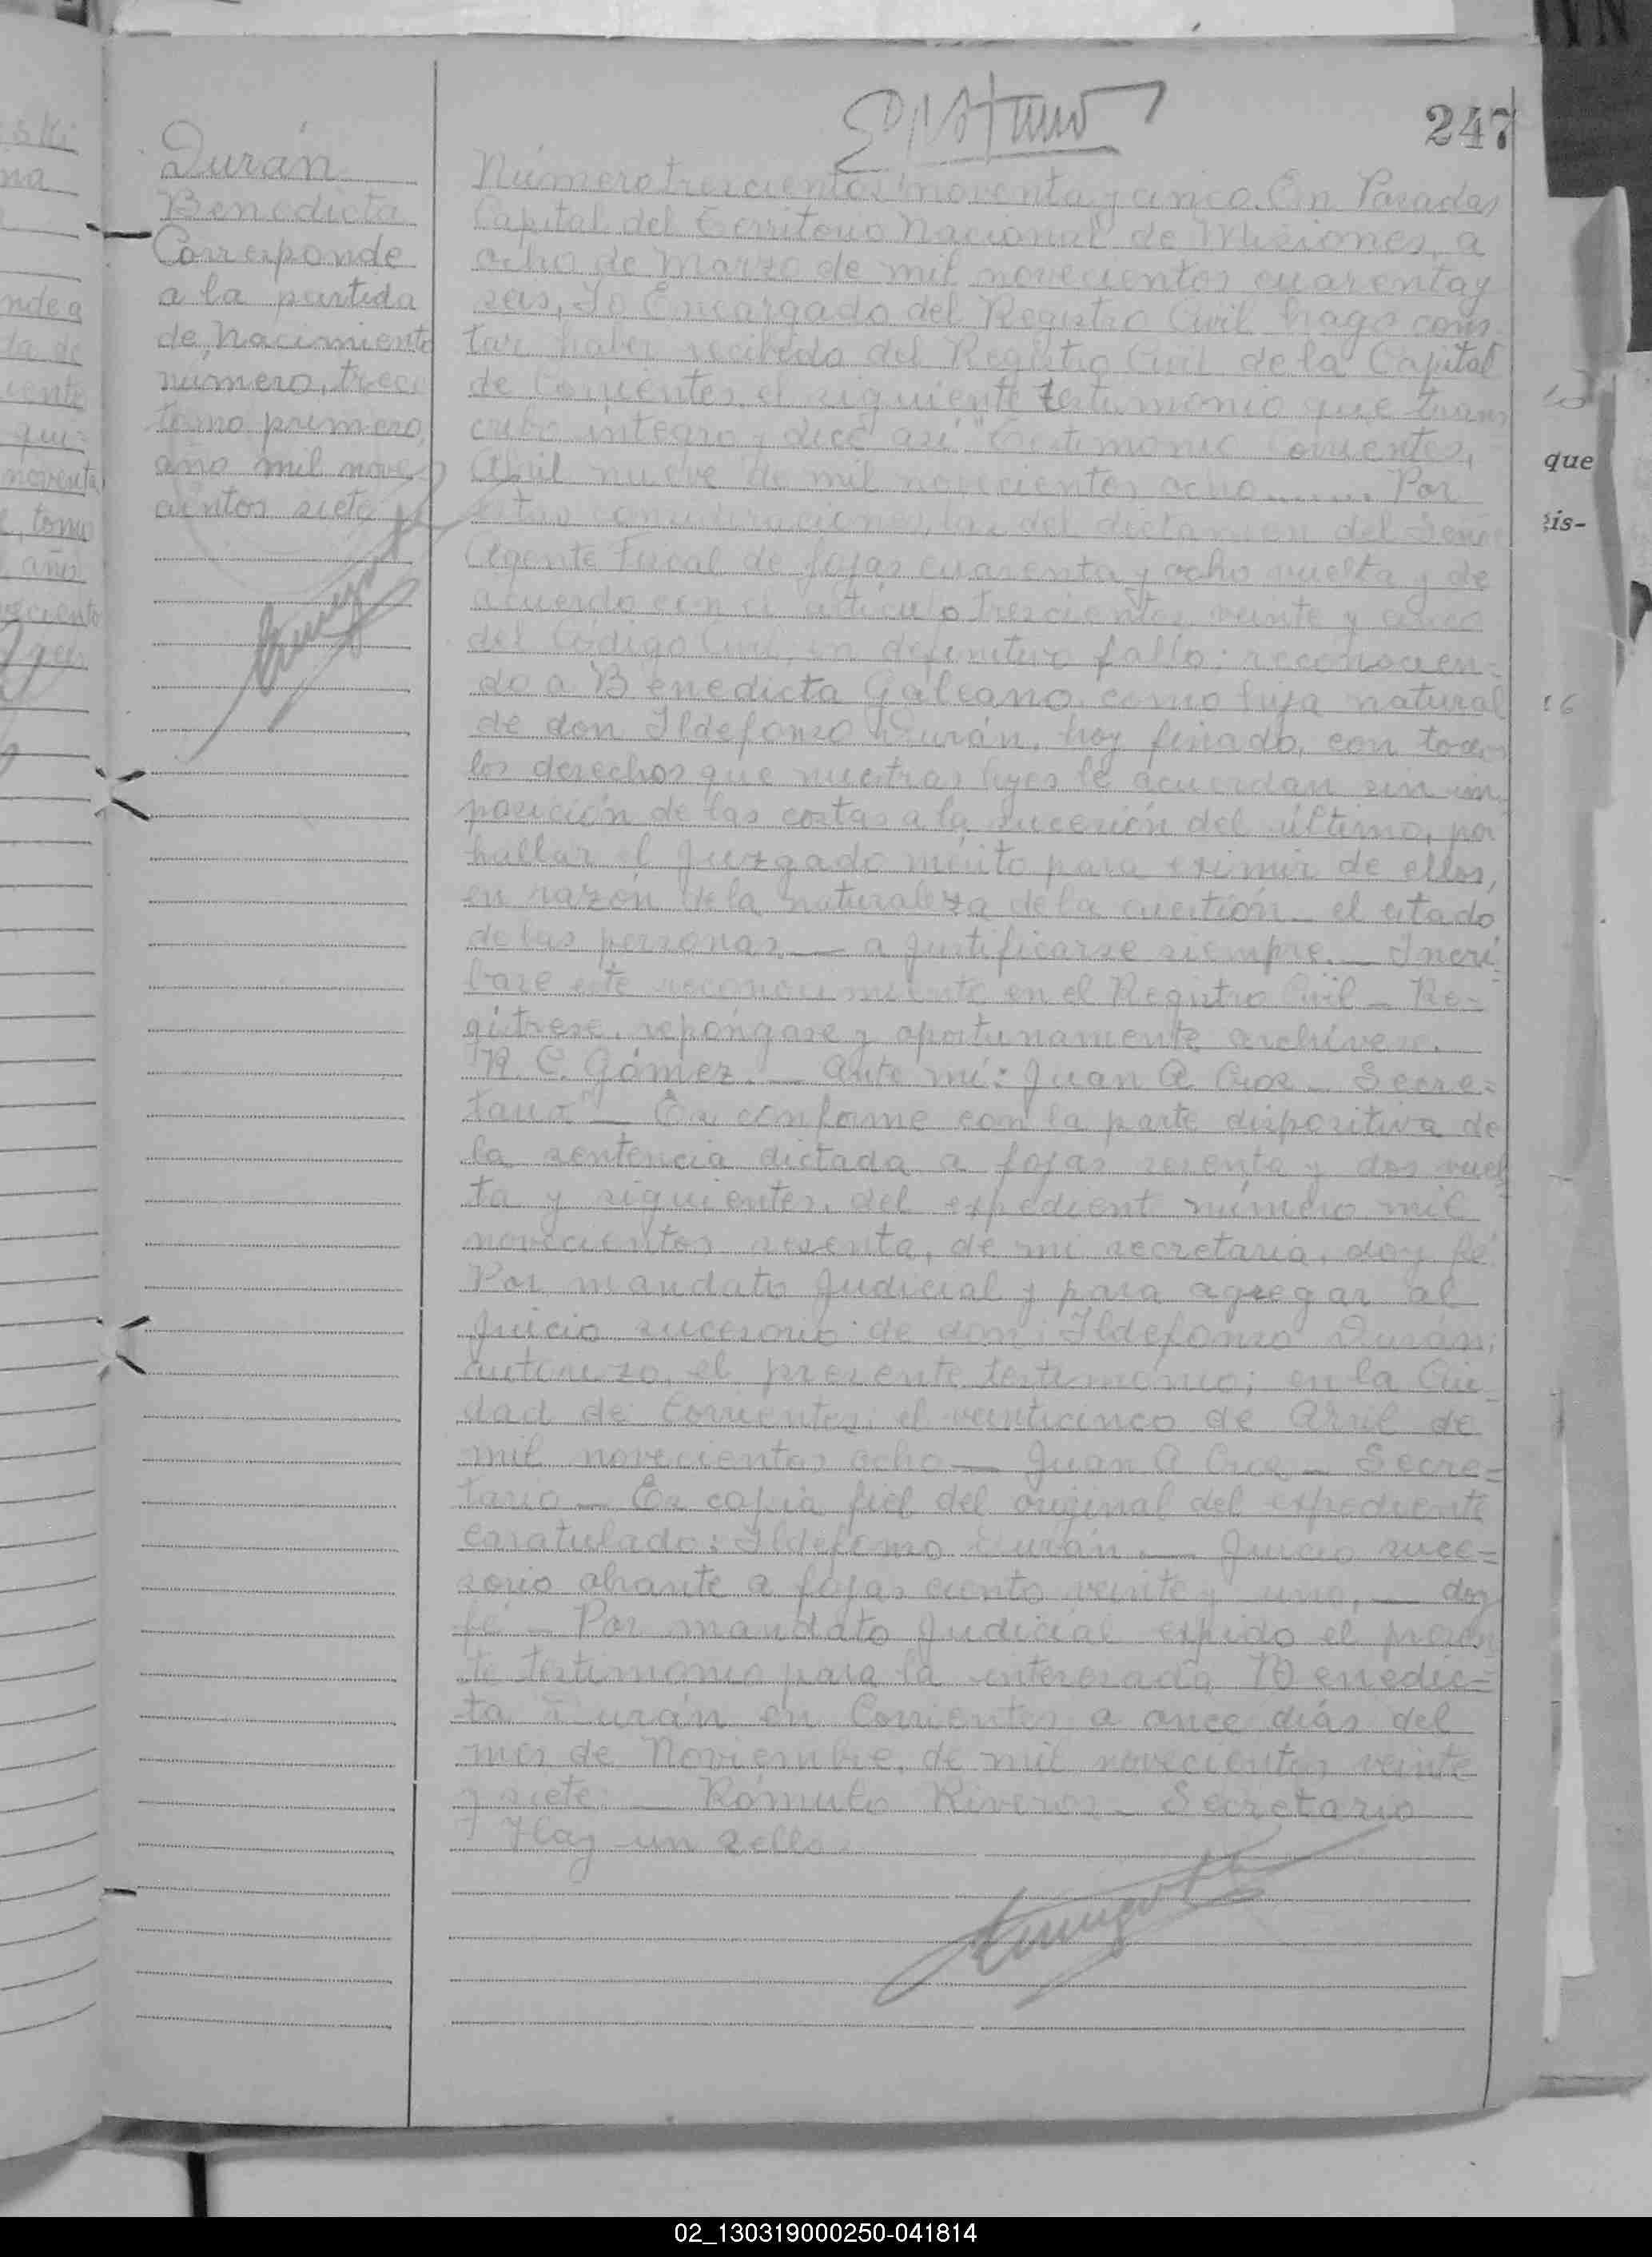 247
Durán
Benedicta
Corresponde
a la partida
de Nacimiento
número, trece
tomo primero,
año mil nove-
cientos siete
Número trescientos noventa y cinco. En Posadas
Capital del Territorio Nacional de Misiones, a
ocho de Marzo de mil novecientos cuarenta y
seis, Yo Encargado del Registro Civil hago cons-
tar haber recibido del Registro Civil de la Capital
de Corrientes, el siguiente testimonio que trans
cribo íntegro y dice así "Testimonio Corrientes,
Abril nueve de mil novecientos ocho........ Por
estas consideraciones, las del dictamen del Señor
Agente Fiscal de fojas cuarenta y ocho vuelta y de
acuerdo con el artículo trescientos veinte y cinco
del Código Civil, en definitivo fallo: reconocien=
do a Benedicta Galeano como hija natural
de don Ildefonzo Durán, hoy finado, con todos
los derechos que nuestras leyes le acuerdan sin im
posición de las costas a la sucesión del último, por
hallar el Juzgado mérito para eximir de ellos,
en razón de la naturaleza de la cuestión - el estado
de las personas, — a justificarse siempre. — Inscrí
base este reconocimiento en el Registro Civil - Re-
gístrese, repóngase y oportunamente archívese.
R. C. Gómez. — Ante mí: Juan A. Cros - Secre=
tario" — Es conforme con la parte dispositiva de
la sentencia dictada a fojas sesenta y dos vuel
ta y siguientes, del expediente número mil
novecientos sesenta, de mi secretaría, doy fé.
Por mandato Judicial y para agregar al
Juicio sucesorio de don Ildefonzo Durán;
autorizo el presente testimonio; en la Ciu
dad de Corrientes, el veinticinco de Abril de
mil novecientos ocho — Juan A Cros - Secre=
tario — Es copia fiel del original del expediente
caratulado: Ildefonzo Durán. — Juicio suce=
sorio obrante a fojas ciento veinte y uno, — doy
fé - Por mandato Judicial expido el presen
te testimonio para la interesada Benedic=
ta Durán en Corrientes a once días del
mes de Noviembre, de mil novecientos veinte
y siete. — Rómulo Riveros - Secretario
Hay un sello.
que
gis-
02_130319000250-041814